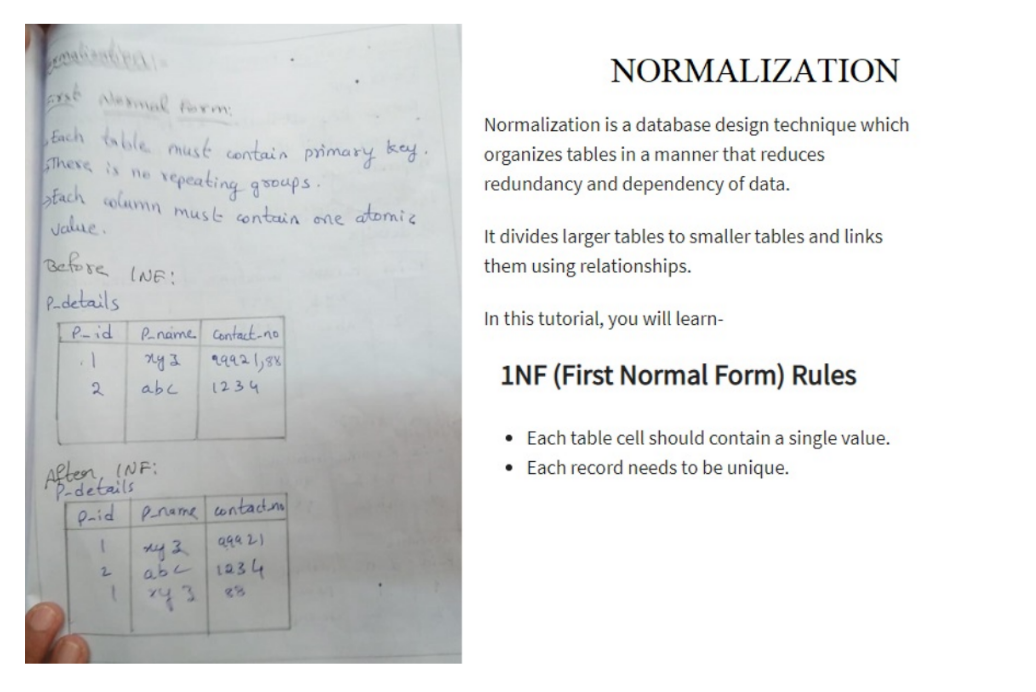 Normalization:
First Normal Form:
Each table must contain primary key.
There is no repeating groups.
Each column must contain one atomic
value.
Before 1NF:
P-details
P-id P-name Contact-no
1 xyz 99921,88
2 abc 1234
After 1NF:
P-details
P-id P-name contact-no
1 xyz 99921
2 abc 1234
1 xyz 88
NORMALIZATION
Normalization is a database design technique which
organizes tables in a manner that reduces
redundancy and dependency of data.
It divides larger tables to smaller tables and links
them using relationships.
In this tutorial, you will learn-
1NF (First Normal Form) Rules
• Each table cell should contain a single value.
• Each record needs to be unique.